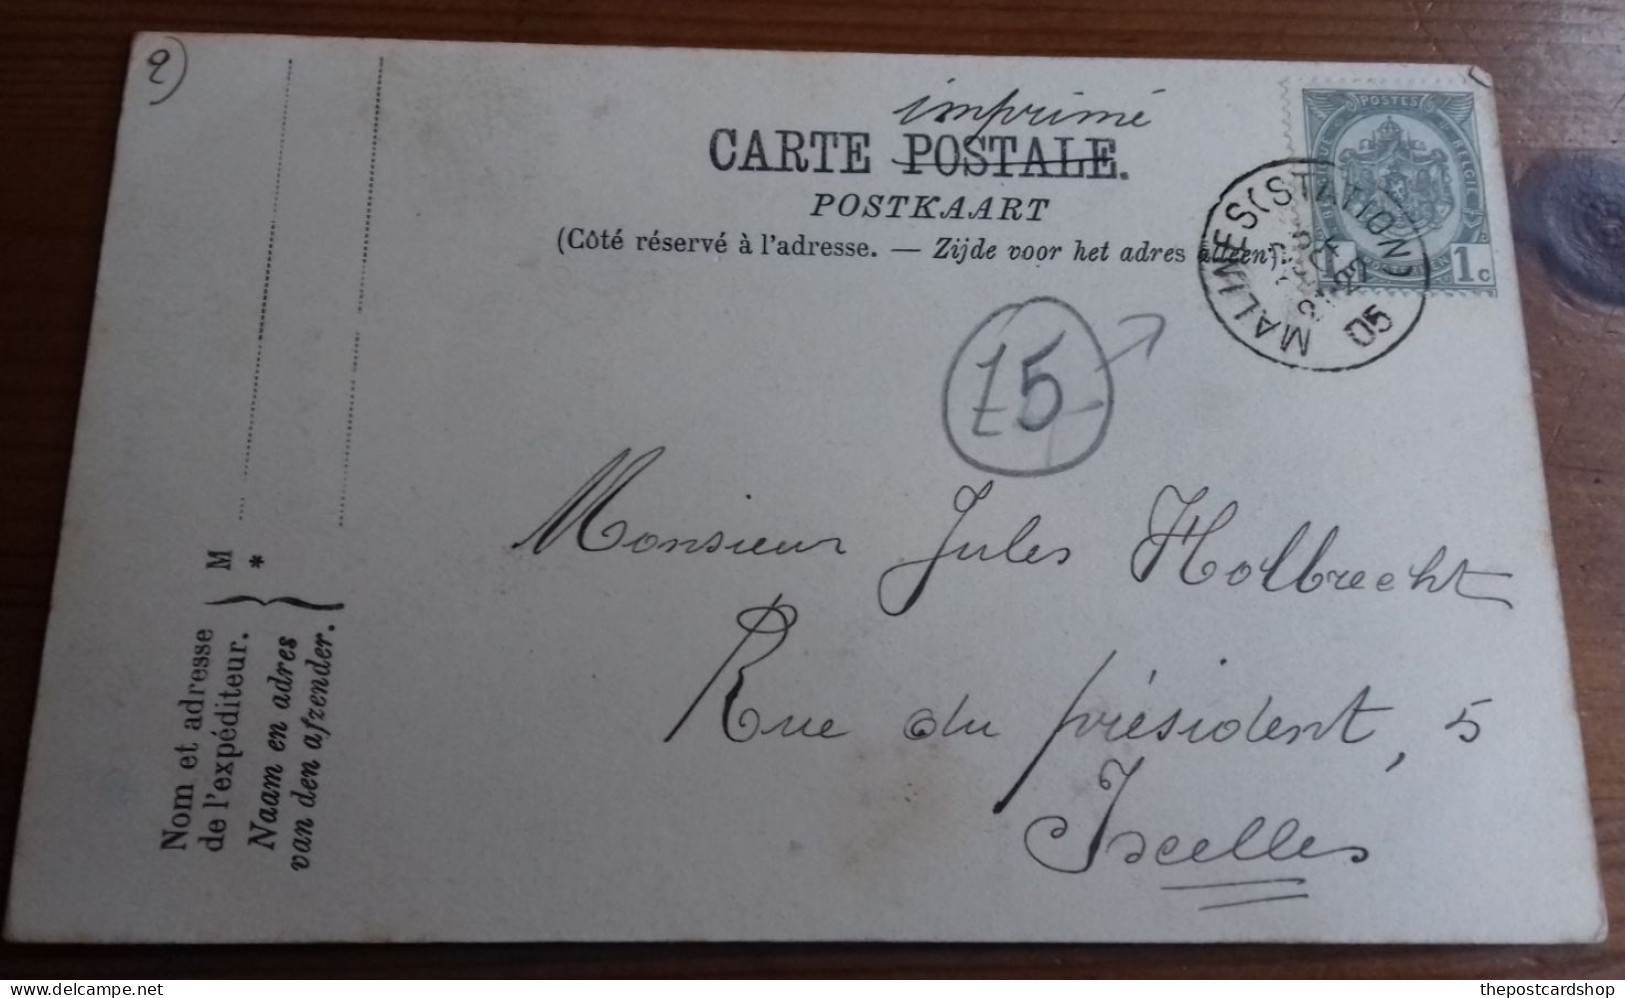 2)
imprimé
CARTE POSTALE.
POSTKAART
(Côté réservé à l'adresse. — Zijde voor het adres alleen).
POSTES
1 1c
MALINES (STATION)
05
£5
Monsieur Jules Holbrecht
Rue du président, 5
Ixelles
M
*
Nom et adresse
de l'expéditeur.
Naam en adres
van den afzender.
delcampe.net
thepostcardshop